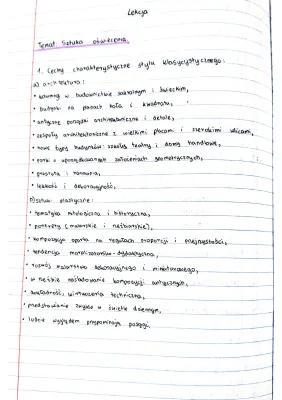 Lekcja
Temat: Sztuka oświecenia.
1. Cechy charakterystyczne stylu klasycystycznego:
a) architektura:
• kolumny w budownictwie sakralnym i świeckim,
• budynki na planach koła i kwadratu,
• antyczne porządki architektoniczne i detale,
• zespoły architektoniczne z wielkimi placami i szerokimi ulicami,
• nowe typy budynków: szkoły, teatry i domy handlowe,
• parki o uporządkowanych założeniach geometrycznych,
• prostota i harmonia,
• lekkość i dekoracyjność,
b) sztuki plastyczne:
• tematyka mitologiczna i historyczna,
• portrety (malarskie i rzeźbiarskie),
• kompozycja oparta na regułach proporcji i przejrzystości,
• tendencja moralizatorsko-dydaktyczna,
• rozwój malarstwa dekoracyjnego i miniaturowego,
• w rzeźbie naśladowanie kompozycji antycznych,
• dokładność, wirtuozeria techniczna,
• przedstawianie zwykle w świetle dziennym,
• ludzie wyglądem przypominają posągi.